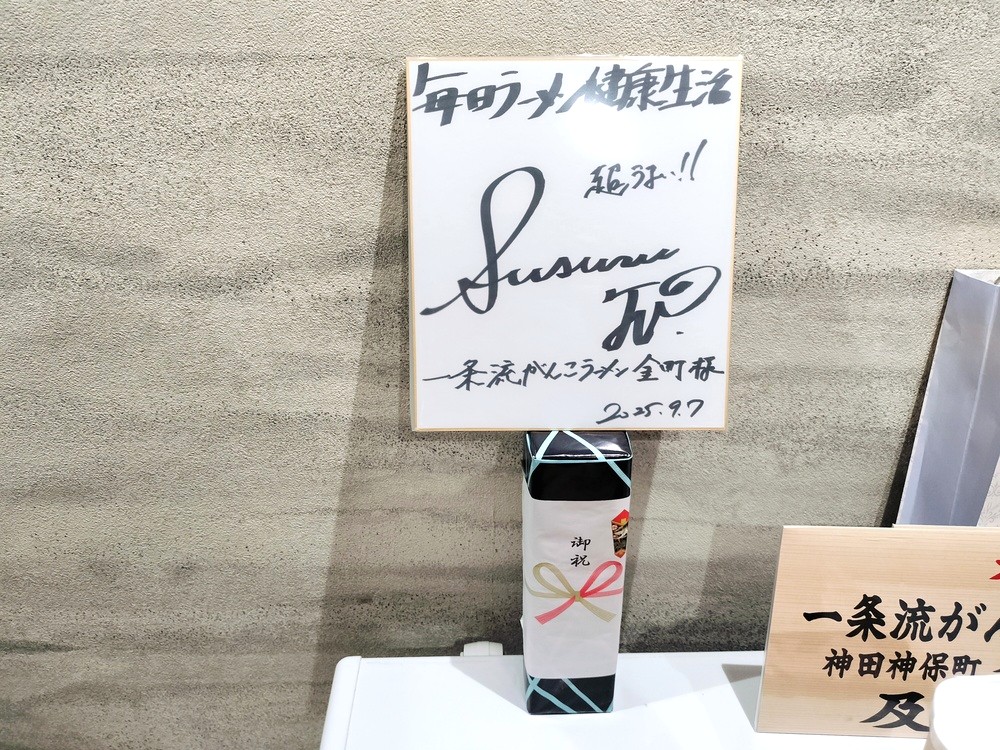 毎日ラーメン健康生活
超うまい!!
Susuru
TV.
一条流がんこラーメン金町様
2025.9.7
御祝
一条流が
神田神保町
及